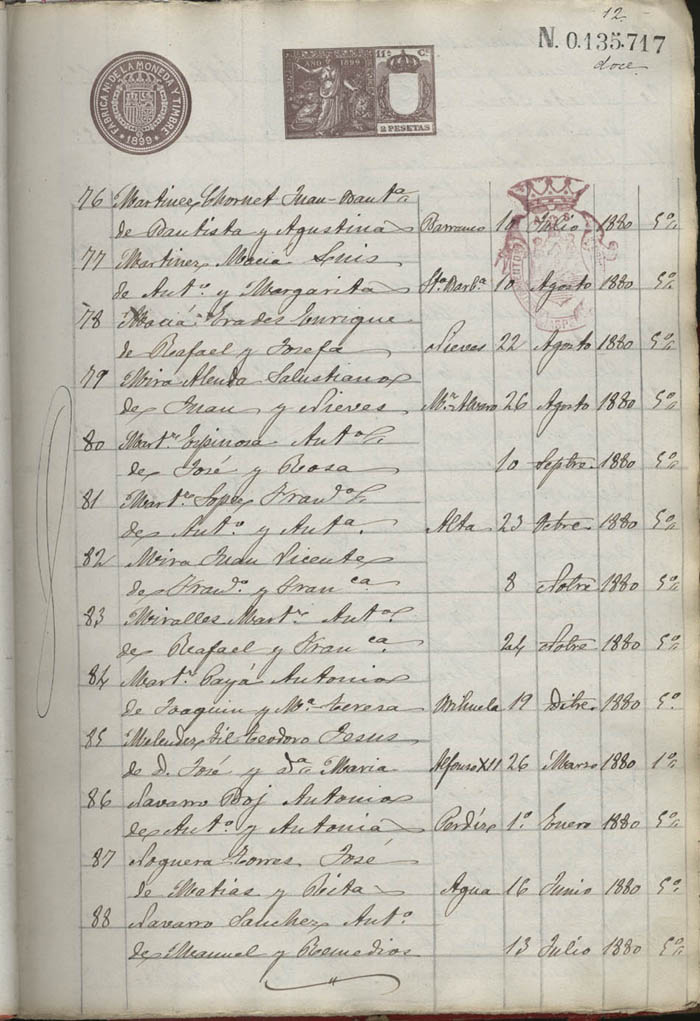 12
N. 0.135.717
doce
FABRICA NL. DE LA MONEDA Y TIMBRE
1899
AÑO 1899
11ª C.
2 PESETAS
76 Martinez Chornet Juan-Bautª
de Bautista y Agustina Barranco 10 Julio 1880 5º
77 Martinez Maciá Luis
de Antº y Margarita Stª Barbª 10 Agosto 1880 5º
78 Maciá Prades Enrique
de Rafael y Josefa Nieves 22 Agosto 1880 5º
79 Mira Alenda Salustiano
de Juan y Nieves Mº Alvaro 26 Agosto 1880 5º
80 Martz Espinosa Antº
de José y Rosa 10 Septre 1880 5º
81 Martz Lopez Francº
de Antº y Antª Alta 23 Octre 1880 5º
82 Mira Juan Vicente
de Francº y Franca 8 Nobre 1880 5º
83 Miralles Martz Antº
de Rafael y Franca 24 Nobre 1880 5º
84 Martz Payá Antonio
de Joaquin y Mª Teresa Orihuela 19 Dibre 1880 5º
85 Melendez Gil Teodoro Jesus
de D. José y Dª Maria Alfonso XII 26 Marzo 1880 1º
86 Navarro Boj Antonio
de Antº y Antonia Perdíz 1º Enero 1880 5º
87 Noguera Torres José
de Matias y Rita Agua 16 Junio 1880 5º
88 Navarro Sanchez Antº
de Manuel y Remedios 13 Julio 1880 5º